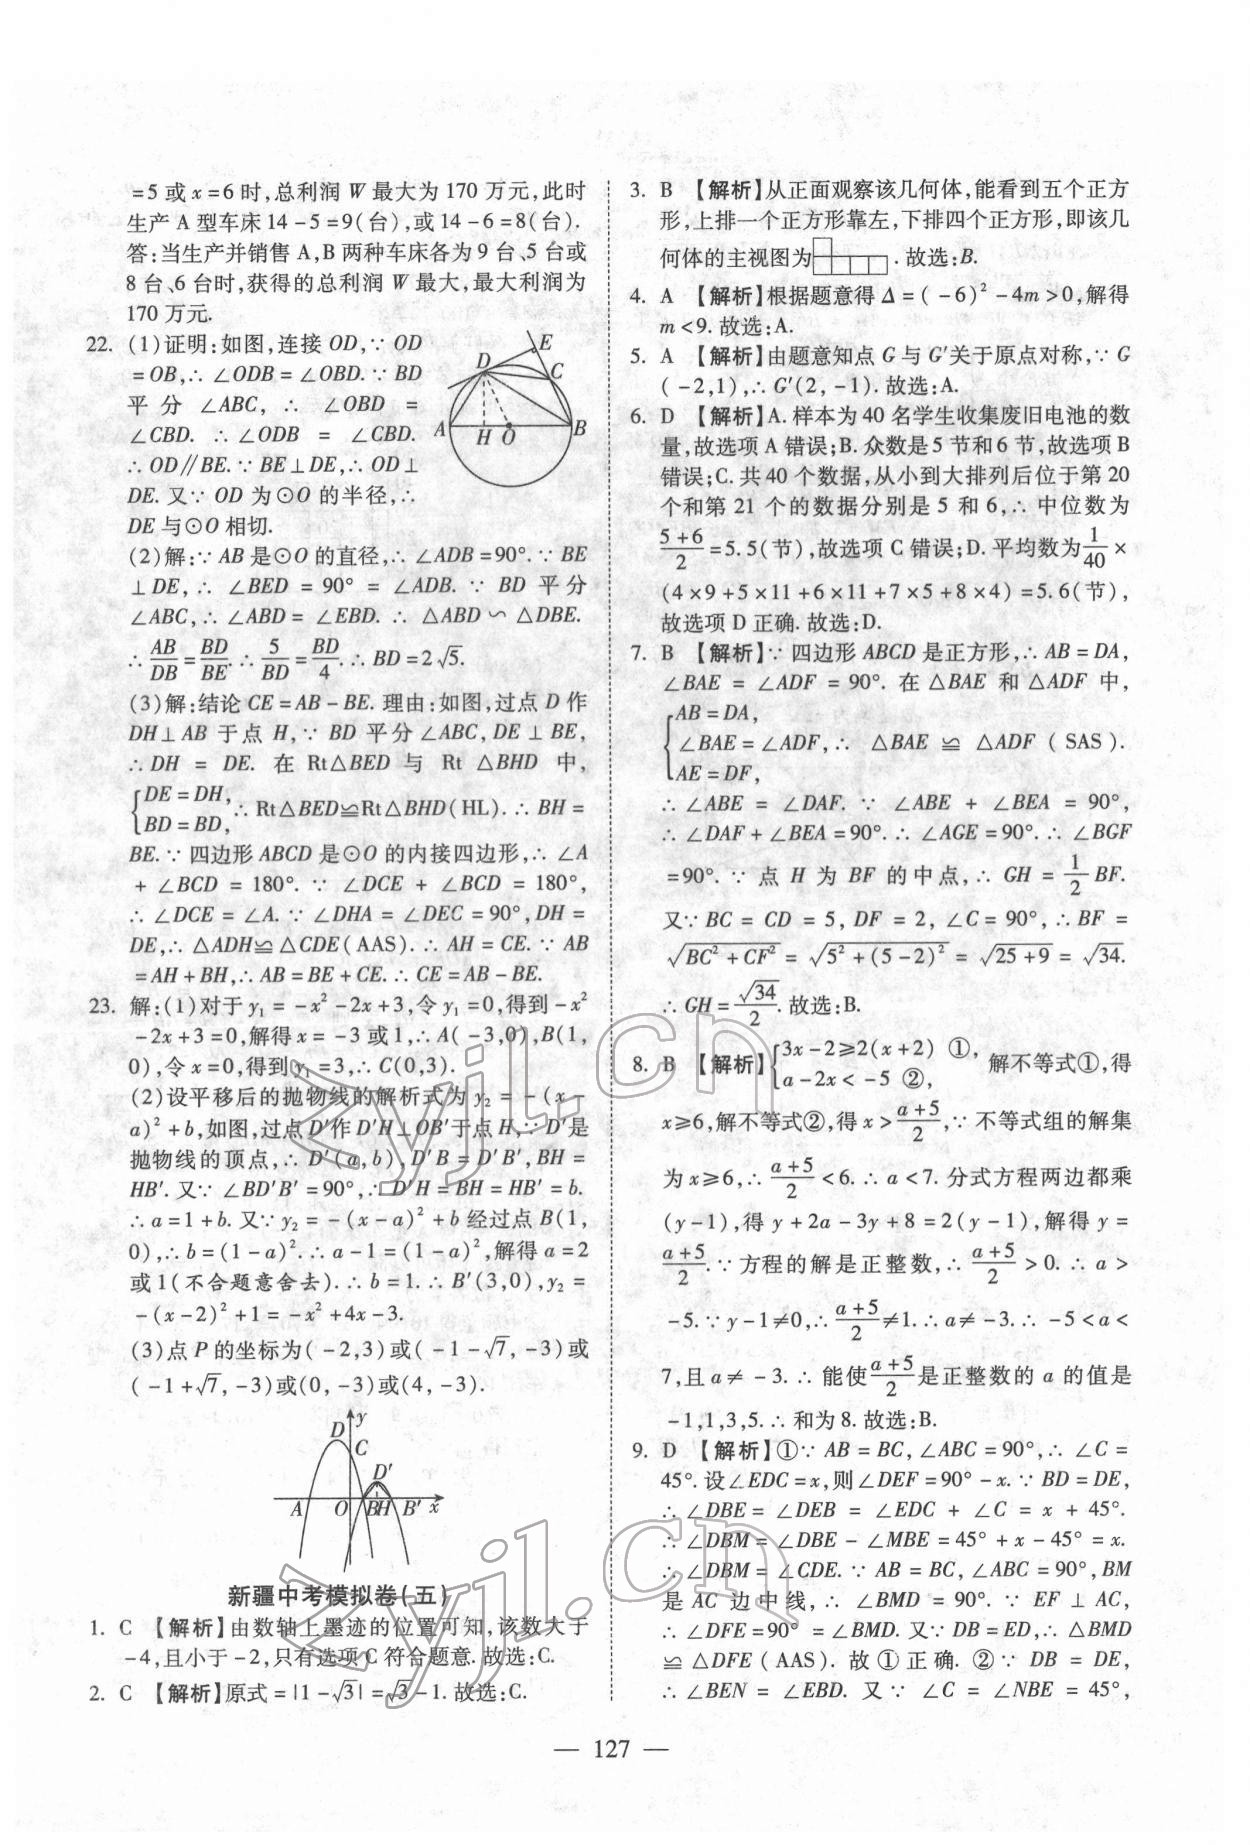 =5或x=6时,总利润W最大为170万元,此时
生产A型车床14-5=9(台),或14-6=8(台).
答:当生产并销售A,B两种车床各为9台、5台或
8台、6台时,获得的总利润W最大,最大利润为
170万元.
22. (1)证明:如图,连接OD,∵OD
=OB,∴∠ODB=∠OBD.∵BD
平分∠ABC,∴∠OBD=
∠CBD.∴∠ODB=∠CBD.
∴OD∥BE.∵BE⊥DE,∴OD⊥
DE.又∵OD为⊙O的半径,∴
DE与⊙O相切.
E
D
C
A
H
O
B
(2)解:∵AB是⊙O的直径,∴∠ADB=90°.∵BE
⊥DE,∴∠BED=90°=∠ADB.∵BD平分
∠ABC,∴∠ABD=∠EBD.∴△ABD∽△DBE.
∴AB/DB=BD/BE.∴5/BD=BD/4.∴BD=2√5.
(3)解:结论CE=AB-BE.理由:如图,过点D作
DH⊥AB于点H,∵BD平分∠ABC,DE⊥BE,
∴DH=DE.在Rt△BED与Rt△BHD中,
{DE=DH,
BD=BD, ∴Rt△BED≌Rt△BHD(HL).∴BH=
BE.∵四边形ABCD是⊙O的内接四边形,∴∠A
+∠BCD=180°.∵∠DCE+∠BCD=180°,
∴∠DCE=∠A.∵∠DHA=∠DEC=90°,DH=
DE,∴△ADH≌△CDE(AAS).∴AH=CE.∵AB
=AH+BH,∴AB=BE+CE.∴CE=AB-BE.
23. 解:(1)对于y₁=-x²-2x+3,令y₁=0,得到-x²
-2x+3=0,解得x=-3或1,∴A(-3,0),B(1,
0),令x=0,得到y₁=3,∴C(0,3).
(2)设平移后的抛物线的解析式为y₂=-(x-
a)²+b,如图,过点D′作D′H⊥OB′于点H,∵D′是
抛物线的顶点,∴D′(a,b),D′B=D′B′,BH=
HB′.又∵∠BD′B′=90°,∴D′H=BH=HB′=b.
∴a=1+b.又∵y₂=-(x-a)²+b经过点B(1,
0),∴b=(1-a)².∴a-1=(1-a)²,解得a=2
或1(不合题意舍去).∴b=1.∴B′(3,0),y₂=
-(x-2)²+1=-x²+4x-3.
(3)点P的坐标为(-2,3)或(-1-√7,-3)或
(-1+√7,-3)或(0,-3)或(4,-3).
D
y
C
D′
A
O
B
H
B′
x
新疆中考模拟卷(五)
1. C 【解析】由数轴上墨迹的位置可知,该数大于
-4,且小于-2,只有选项C符合题意.故选:C.
2. C 【解析】原式=|1-√3|=√3-1.故选:C.
3. B 【解析】从正面观察该几何体,能看到五个正方
形,上排一个正方形靠左,下排四个正方形,即该几
何体的主视图为.故选:B.
4. A 【解析】根据题意得Δ=(-6)²-4m>0,解得
m<9.故选:A.
5. A 【解析】由题意知点G与G′关于原点对称,∵G
(-2,1),∴G′(2,-1).故选:A.
6. D 【解析】A.样本为40名学生收集废旧电池的数
量,故选项A错误;B.众数是5节和6节,故选项B
错误;C.共40个数据,从小到大排列后位于第20
个和第21个的数据分别是5和6,∴中位数为
5+6/2=5.5(节),故选项C错误;D.平均数为1/40×
(4×9+5×11+6×11+7×5+8×4)=5.6(节),
故选项D正确.故选:D.
7. B 【解析】∵四边形ABCD是正方形,∴AB=DA,
∠BAE=∠ADF=90°.在△BAE和△ADF中,
{AB=DA,
∠BAE=∠ADF,∴△BAE≌△ADF(SAS).
AE=DF,
∴∠ABE=∠DAF.∵∠ABE+∠BEA=90°,
∴∠DAF+∠BEA=90°.∴∠AGE=90°.∴∠BGF
=90°.∵点H为BF的中点,∴GH=1/2BF.
又∵BC=CD=5,DF=2,∠C=90°,∴BF=
√BC²+CF²=√5²+(5-2)²=√25+9=√34.
∴GH=√34/2.故选:B.
8. B 【解析】{3x-2≥2(x+2) ①,
a-2x<-5 ②, 解不等式①,得
x≥6,解不等式②,得x>a+5/2,∵不等式组的解集
为x≥6,∴a+5/2<6.∴a<7.分式方程两边都乘
(y-1),得y+2a-3y+8=2(y-1),解得y=
a+5/2.∵方程的解是正整数,∴a+5/2>0.∴a>
-5.∵y-1≠0,∴a+5/2≠1.∴a≠-3.∴-5<a<
7,且a≠-3.∴能使a+5/2是正整数的a的值是
-1,1,3,5.∴和为8.故选:B.
9. D 【解析】①∵AB=BC,∠ABC=90°,∴∠C=
45°.设∠EDC=x,则∠DEF=90°-x.∵BD=DE,
∴∠DBE=∠DEB=∠EDC+∠C=x+45°.
∴∠DBM=∠DBE-∠MBE=45°+x-45°=x.
∴∠DBM=∠CDE.∵AB=BC,∠ABC=90°,BM
是AC边中线,∴∠BMD=90°.∵EF⊥AC,
∴∠DFE=90°=∠BMD.又∵DB=ED,∴△BMD
≌△DFE(AAS).故①正确.②∵DB=DE,
∴∠BEN=∠EBD.又∵∠C=∠NBE=45°,
— 127 —
zyjl.cn
zyjl.cn